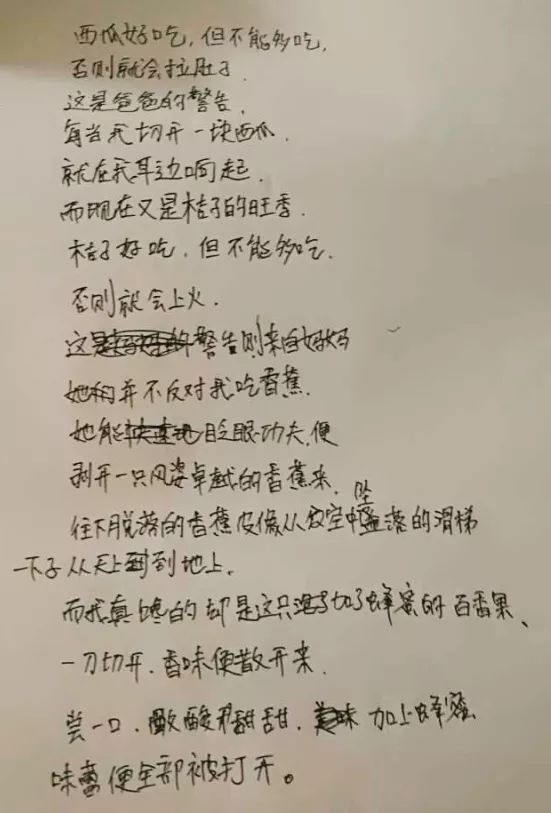 西瓜好吃，但不能多吃，
否则就会拉肚子．
这是爸爸的警告．
每当我切开一块西瓜．
就在我耳边响起．
而现在又是桔子的旺季．
桔子好吃，但不能多吃．
否则就会上火．
这警告则来自妈妈
她们并不反对我吃香蕉．
她能眨眼功夫，便
剥开一只风姿卓越的香蕉来．
往下脱落的香蕉皮像从空中坠落的滑梯
一下子从天上到地上．
而我真馋的却是这只加了蜂蜜的百香果、
一刀切开．香味便散开来．
尝一口．酸酸甜甜．加上蜂蜜
味蕾便全部被打开。